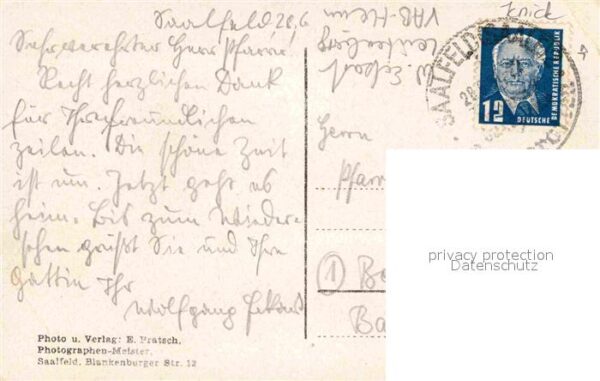 Saalfeld 28,6
Sehr verehrter Herr Pfarrer!
Recht herzlichen Dank
für Ihre freundlichen
Zeilen. Die schöne Zeit
ist um. Jetzt geht es
heim. Bis zum Wieder-
sehen grüßt Sie und Ihre
Gattin Ihr
Wolfgang
Photo u. Verlag: E. Pratsch,
Photographen-Meister,
Saalfeld, Blankenburger Str. 12
Knick
VAB-Heim
Leutenberg
Herrn
Pfarr
SAALFELD
12
DEUTSCHE
DEMOKRATISCHE REPUBLIK
privacy protection
Datenschutz